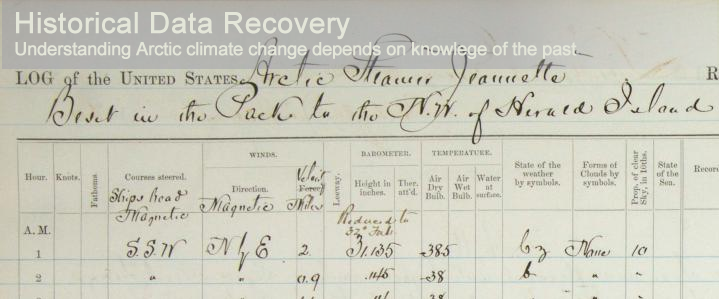 Historical Data Recovery
Understanding Arctic climate change depends on knowlege of the past
LOG of the UNITED STATES Arctic Steamer Jeannette R
Beset in the Pack to the N.W. of Herald Island
WINDS. BAROMETER. TEMPERATURE.
Hour. Knots. Fathoms. Courses steered. Ships head Magnetic Direction. Magnetic Velocity Force. Miles Leeway. Height in inches. Ther. att'd. Air Dry Bulb. Air Wet Bulb. Water at surface. State of the weather by symbols. Forms of Clouds by symbols. Prop. of clear Sky, in 10ths. State of the Sea. Record
A. M. Reduced to 32° Fah.
1 S.S.W N by E 2. 31.135 -38.5 bz None 10
2 " " 0.9 .145 -38 b " "